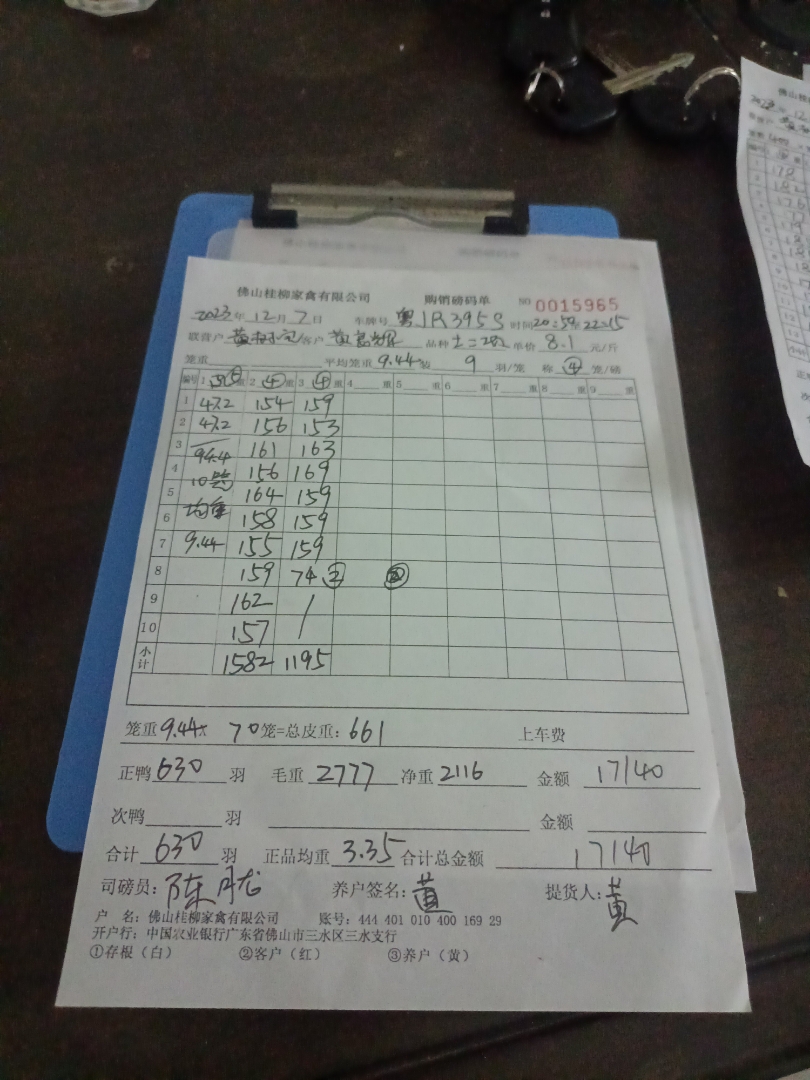 佛山桂柳家禽有限公司 购销磅码单 NO 0015965
2023年12月7日 车牌号 粤JR395S 时间20:59/22:15
联营户 客户 黄 品种 单价 8.1 元/斤
笼重 平均笼重9.44 装 9 羽/笼 称 ④ 笼/磅
编号 1 ⑤ 重 2 ④ 重 3 ④ 重 4 重 5 重 6 重 7 重 8 重 9 重
1 47.2 154 159
2 47.2 156 153
3 94.4 161 163
4 10 156 169
5 均重 164 159
6 158 159
7 9.44 155 159
8 159 74 ②
9 162 /
10 157 /
小计 1582 1195
笼重9.44x 70笼=总皮重: 661 上车费
正鸭 630 羽 毛重 2777 净重 2116 金额 17140
次鸭 羽 金额
合计 630 羽 正品均重 3.35 合计总金额 17140
司磅员: 陈龙 养户签名: 黄 提货人: 黄
户 名: 佛山桂柳家禽有限公司 账号: 444 401 010 400 169 29
开户行: 中国农业银行广东省佛山市三水区三水支行
①存根(白) ②客户(红) ③养户(黄)